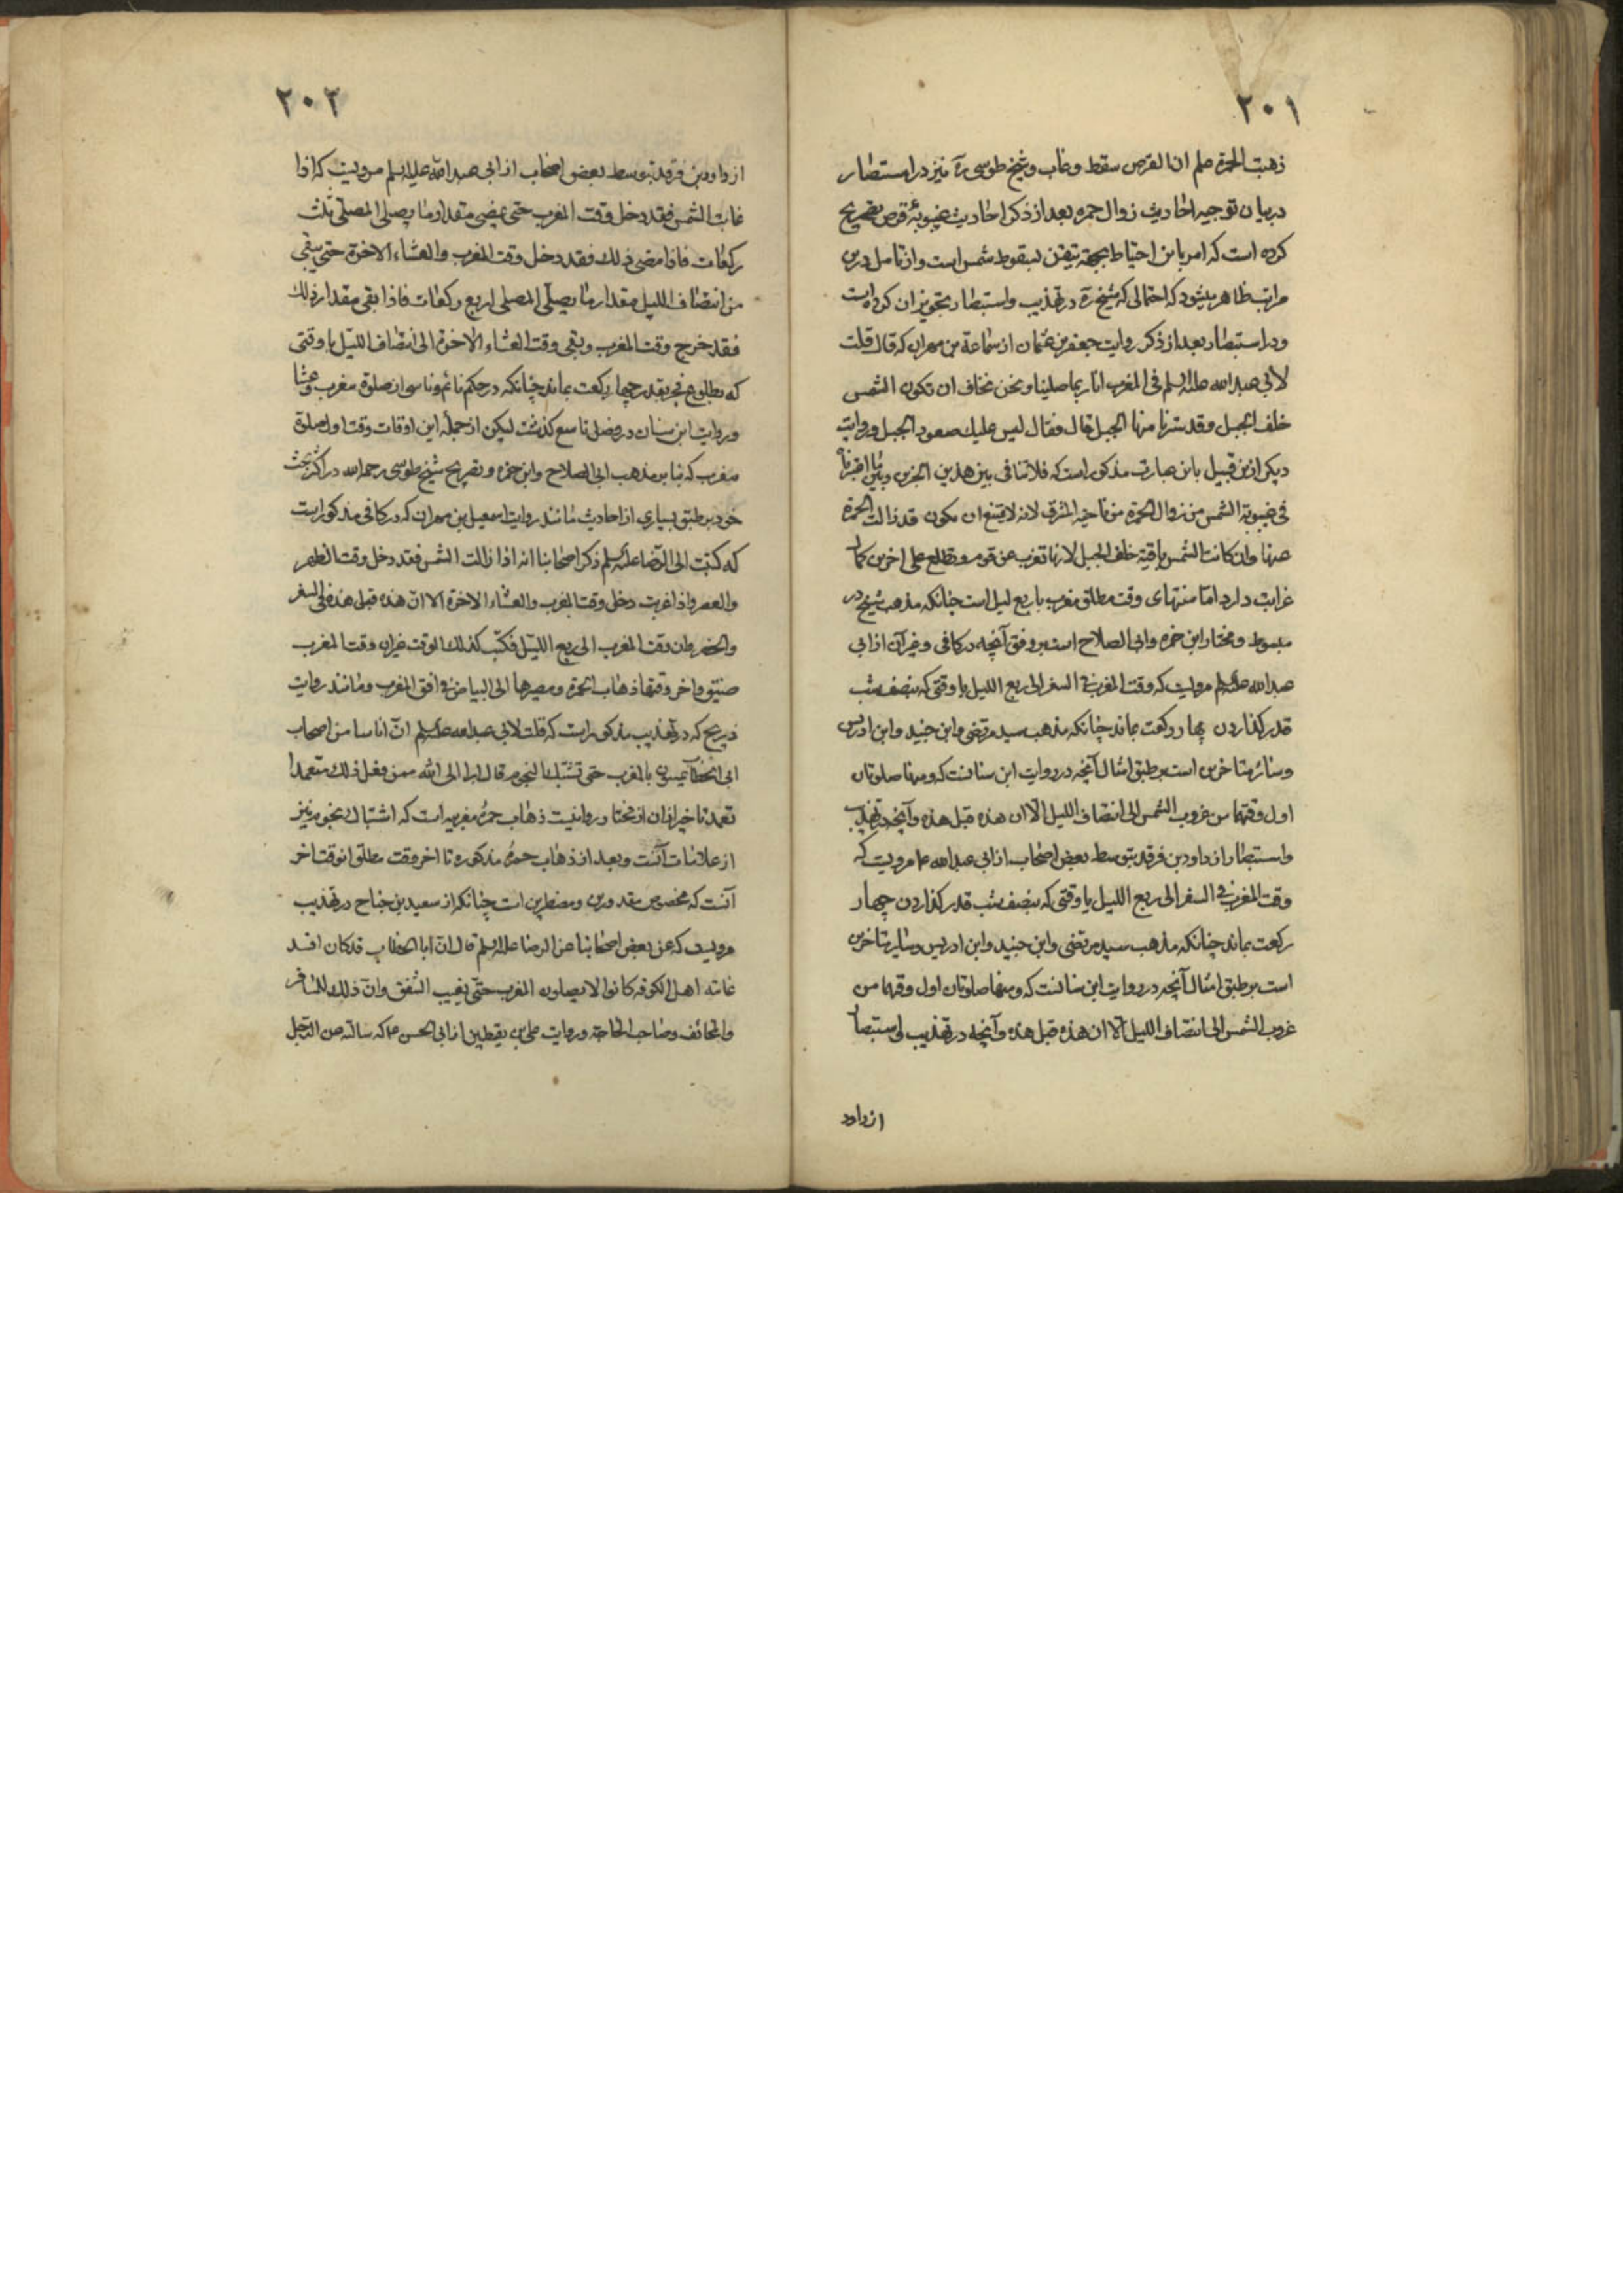 ۲۰۱
ذهبت الحمرة علم ان القرص سقط وغاب و شیخ طوسی ره نیز در استبصار
در بیان توجیه احادیث زوال حمره بعد از ذکر احادیث غیبوبهٔ قرص تصریح
کرده است که امر باین احتیاط بجهة تیقن لسقوط شمس است و از تامل درین
مراتب ظاهر میشود که احتمالی که شیخ ره در تهذیب و استبصار تجویز ان کرده است
و در استبصار بعد از ذکر روایت جعفر بن عثمان از سماعة بن مهران که قال قلت
لابی عبد الله علیه السلم فی المغرب انا ربما صلینا و نحن نخاف ان تکون الشمس
خلف الجبل و قد سترنا منها الجبل قال فقال لیس علیک صعود الجبل و روایت
دیکر ازین قبیل باین عبارت مذکور است که فلا تنافی بین هذین الخبرین و بین ما اخبرناه
فی غیبوبة الشمس من زوال الحمرة من ناحیة المشرق لانه لا یمتنع ان یکون قد زالت الحمرة
عنها و ان کانت الشمس باقیة خلف الجبل لانها تغرب عن قوم و تطلع علی اخرین کمال
غرابت دارد اما منتهای وقت مطلق مغرب یا ربع لیل است چنانکه مذهب شیخ در
مبسوط و مختار ابن حمزه و ابی الصلاح است بر وفق آنچه در کافی و غیر آن از ابی
عبد الله علیه السلم مرویست که وقت المغرب فی السفر الی ربع اللیل یا وقتی که بنصف شب
قدر کذاردن چهار رکعت بماند چنانکه مذهب سید مرتضی و ابن جنید و ابن ادریس
و سائر متاخرین است بر طبق امثال آنچه در روایت ابن سنانست که و منها صلوتان
اول وقتهما من غروب الشمس الی انتصاف اللیل الا ان هذه قبل هذه و آنچه در تهذیب
و استبصار از داود بن فرقد بتوسط بعض اصحاب از ابی عبد الله ع مرویست که
وقت المغرب فی السفر الی ربع اللیل یا وقتی که بنصف شب قدر کذاردن چهار
رکعت بماند چنانکه مذهب سید مرتضی و ابن جنید و ابن ادریس و سایر متاخرین
است بر طبق امثال آنچه در روایت ابن سنانست که و منها صلوتان اول وقتهما من
غروب الشمس الی انتصاف اللیل الا ان هذه قبل هذه و آنچه در تهذیب و استبصار
از داود
۲۰۲
از داود بن فرقد بتوسط بعض اصحاب از ابی عبد الله علیه السلم مرویست که اذا
غابت الشمس فقد دخل وقت المغرب حتی یمضی مقدار ما یصلی المصلی ثلث
رکعات فاذا مضی ذلک فقد دخل وقت المغرب و العشاء الاخرة حتی یبقی
من انتصاف اللیل مقدار ما یصلی المصلی اربع رکعات فاذا بقی مقدار ذلک
فقد خرج وقت المغرب و بقی وقت العشاء الاخرة الی انتصاف اللیل یا وقتی
که بطلوع فجر بقدر چهار رکعت بماند چنانکه در حکم نائم و ناسی از صلوة مغرب و عشا
و روایت ابن سنان در فصل تاسع کذشت لیکن از جمله این اوقات وقت اول صلوة
مغرب که بنابر مذهب ابی الصلاح و ابن حمزه و تصریح شیخ طوسی رحمه الله در اکثر بحث
خود بر طبق بسیاری از احادیث مانند روایت اسمعیل بن مهران که در کافی مذکور است
که کتبت الی الرضا علیه السلم ذکر اصحابنا انه اذا زالت الشمس فقد دخل وقت الظهر
و العصر و اذا غربت دخل وقت المغرب و العشاء الاخرة الا ان هذه قبل هذه فی السفر
و الحضر و ان وقت المغرب الی ربع اللیل فکتب کذلک الوقت غیر ان وقت المغرب
ضیق و اخر وقتها ذهاب الحمرة و مصیرها الی البیاض فی افق المغرب و مانند روایت
ذریح که در تهذیب مذکور است که قلت لابی عبد الله علیه السلم ان اناسا من اصحاب
ابی الخطاب یمسون بالمغرب حتی تشتبک النجوم قال ابرا الی الله ممن فعل ذلک متعمدا
تعمد تاخیر از ان از مختار روا نیست ذهاب حمرهٔ مغربیه است که اشتباک نجوم نیز
از علامات آنست و بعد از ذهاب حمرهٔ مذکوره تا اخر وقت مطلق انوقت اخر
آنست که مخصوص معذورین و مضطرین است چنانکه از سعید بن جناح در تهذیب
مرویست که عن بعض اصحابنا عن الرضا علیه السلم قال ان ابا الخطاب قد کان افسد
عامة اهل الکوفه کانوا لا یصلون المغرب حتی یغیب الشفق و ان ذلک للمسافر
و الخائف و صاحب الحاجة و روایت علی بن یقطین از ابی الحسن ع که سالته عن الرجل